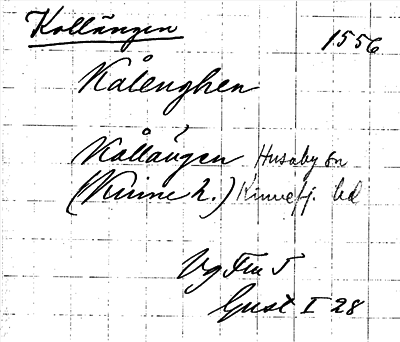 Kollängen 1556
Kålenghen
Kållängen Husaby sn
(Kinne h.) Kinnefj. hd
Vg Fru 5
Gust I 28